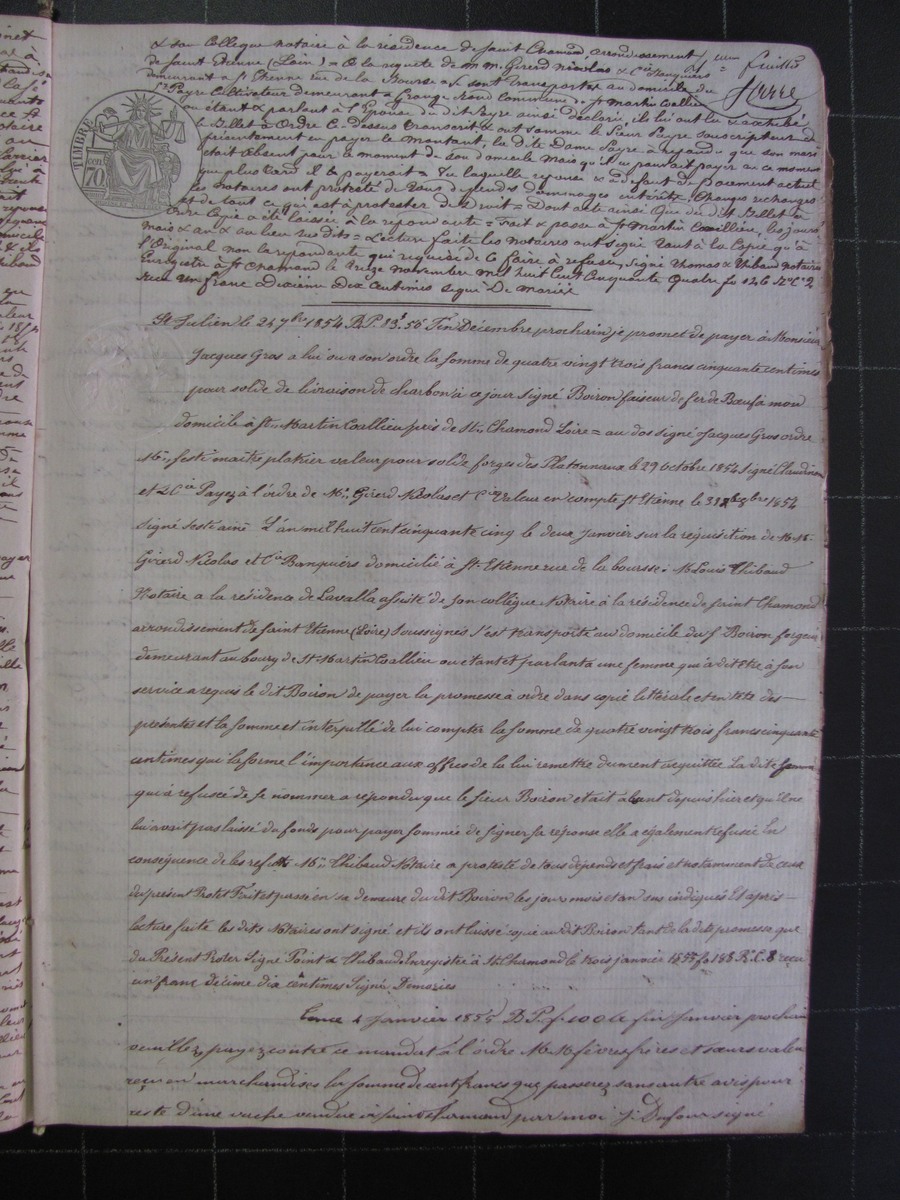 & son Collegue notaire à la résidence de Saint Chamond arrondissement
de Saint Etienne (Loire) = à la requête de m m. Girerd Nicolas & Cie Banquiers
demeurant à St Etienne rue de la Bourse = se sont transportés au domicile du
Sr Payre Cultivateur demeurant à Grange Rond Commune de St Martin Coallieu
ou étant & parlant à l'Epouse du dit Payre ainsi déclaré, ils lui ont lu & exhibé
le Billet à Ordre Ci Dessus transcrit & ont sommé le Sieur Payre souscripteur de
présentement en payer le montant, la dite Dame Payre a répondu que son mari
était absent pour le moment de son domicile mais qu'il ne pourrait payer en ce moment
que plus tard il le payeroit = Vu laquelle reponse & à défaut de paiement actuel
les notaires ont protesté de tous dépends dommages intérêts, changes rechanges
et de tout ce qui est à protester de Droit = Dont acte ainsi que du dit Billet à
Ordre Copie a été laissée à la repondante = Fait & passé à St Martin Coaillieu, les jours
mois & an & au lieu sus dits = Lecture faite les notaires ont signé tant à la Copie qu'à
l'Original non la repondante qui requise de le faire à refusé, signé Thomas & Thibaud notaires
Enregistré à St Chamond le treize novembre mil huit Cent Cinquante Quatre fo 126 Ro Ce 2
Recu un franc Dixieme Dix Centimes signé De Mariez
feuille
TIMBRE
70
St Julien le 24 7bre 1854 B.P. 83f. 50 Fin Décembre prochain je promet de payer à Monsieur
Jacques Gras a lui ou a son ordre la somme de quatre vingt trois francs cinquante centimes
pour solde de livraison de charbon à ce jour Signé Boiron faiseur de fer de Bœuf à mon
domicile à St Martin Coallieu près de St Chamond Loire = au dos signé Jacques Gros ordre
Mr. Feste maitre platrier valeur pour solde forges des Platonnaux le 29 Octobre 1854 Signé Claudinon
et Cie Payez à l'ordre de Mr. Girerd Nicolas et Cie Valeur en compte St Etienne le 31 8bre 1854
signé Feste ainé L'an mil huit cent cinquante cinq le deux Janvier sur la réquisition de M. M.
Girerd Nicolas et Cie Banquiers domicilié à St Etienne rue de la bourse. M Louis Thibaud
Notaire a la résidence de Lavalla assisté de son collègue Notaire à la résidence de Saint Chamond
arrondissement de Saint Etienne (Loire) Soussignés s'est transporté au domicile du Sr Boiron forgeur
demeurant au bourg de St Martin Coallieu ou etant et parlant a une femme qui à dit être à son
service a requis le dit Boiron de payer la promesse à ordre dans copie littérale et en tête des
présentes et la somme et interpellé de lui compter la somme de quatre vingt trois francs cinquante
centimes qui la forme l'importence aux offres de la lui remettre dument acquittée La dite femme
qui à refuseé de se nommer a répondu que le sieur Boiron etait absent depuis hier et qu'il ne
lui avait pas laissé du fonds pour payer sommée de signer sa réponse elle a également refusée En
conséquence de les refus Mr. Thibaud Notaire a protesté de tous dépends et frais et notamment de ceux
du présent Protet Fait et passé en sa demeure du dit Boiron les jour mois et an sus indiqués Et après
lecture faite les dits Notaires ont signé et ils ont laissé copie au dit Boiron tant de la dite promesse que
du Présent Protet Signé Point & Thibaud Enregistré à St Chamond le trois janvier 1855 fo 188 R. C. 8 recu
un franc décime dix centimes Signé Demories
4 Janvier 1855 B P. f. 100 le fin Janvier prochain
veuillez payez contre ce mandat à l'ordre M. M fèvres frères et sœurs valeur
reçu en marchandises la somme de cent francs que passerez sans autre avis pour
reste d'une vache vendue à Saint Chamond par moi J. Dufour signé